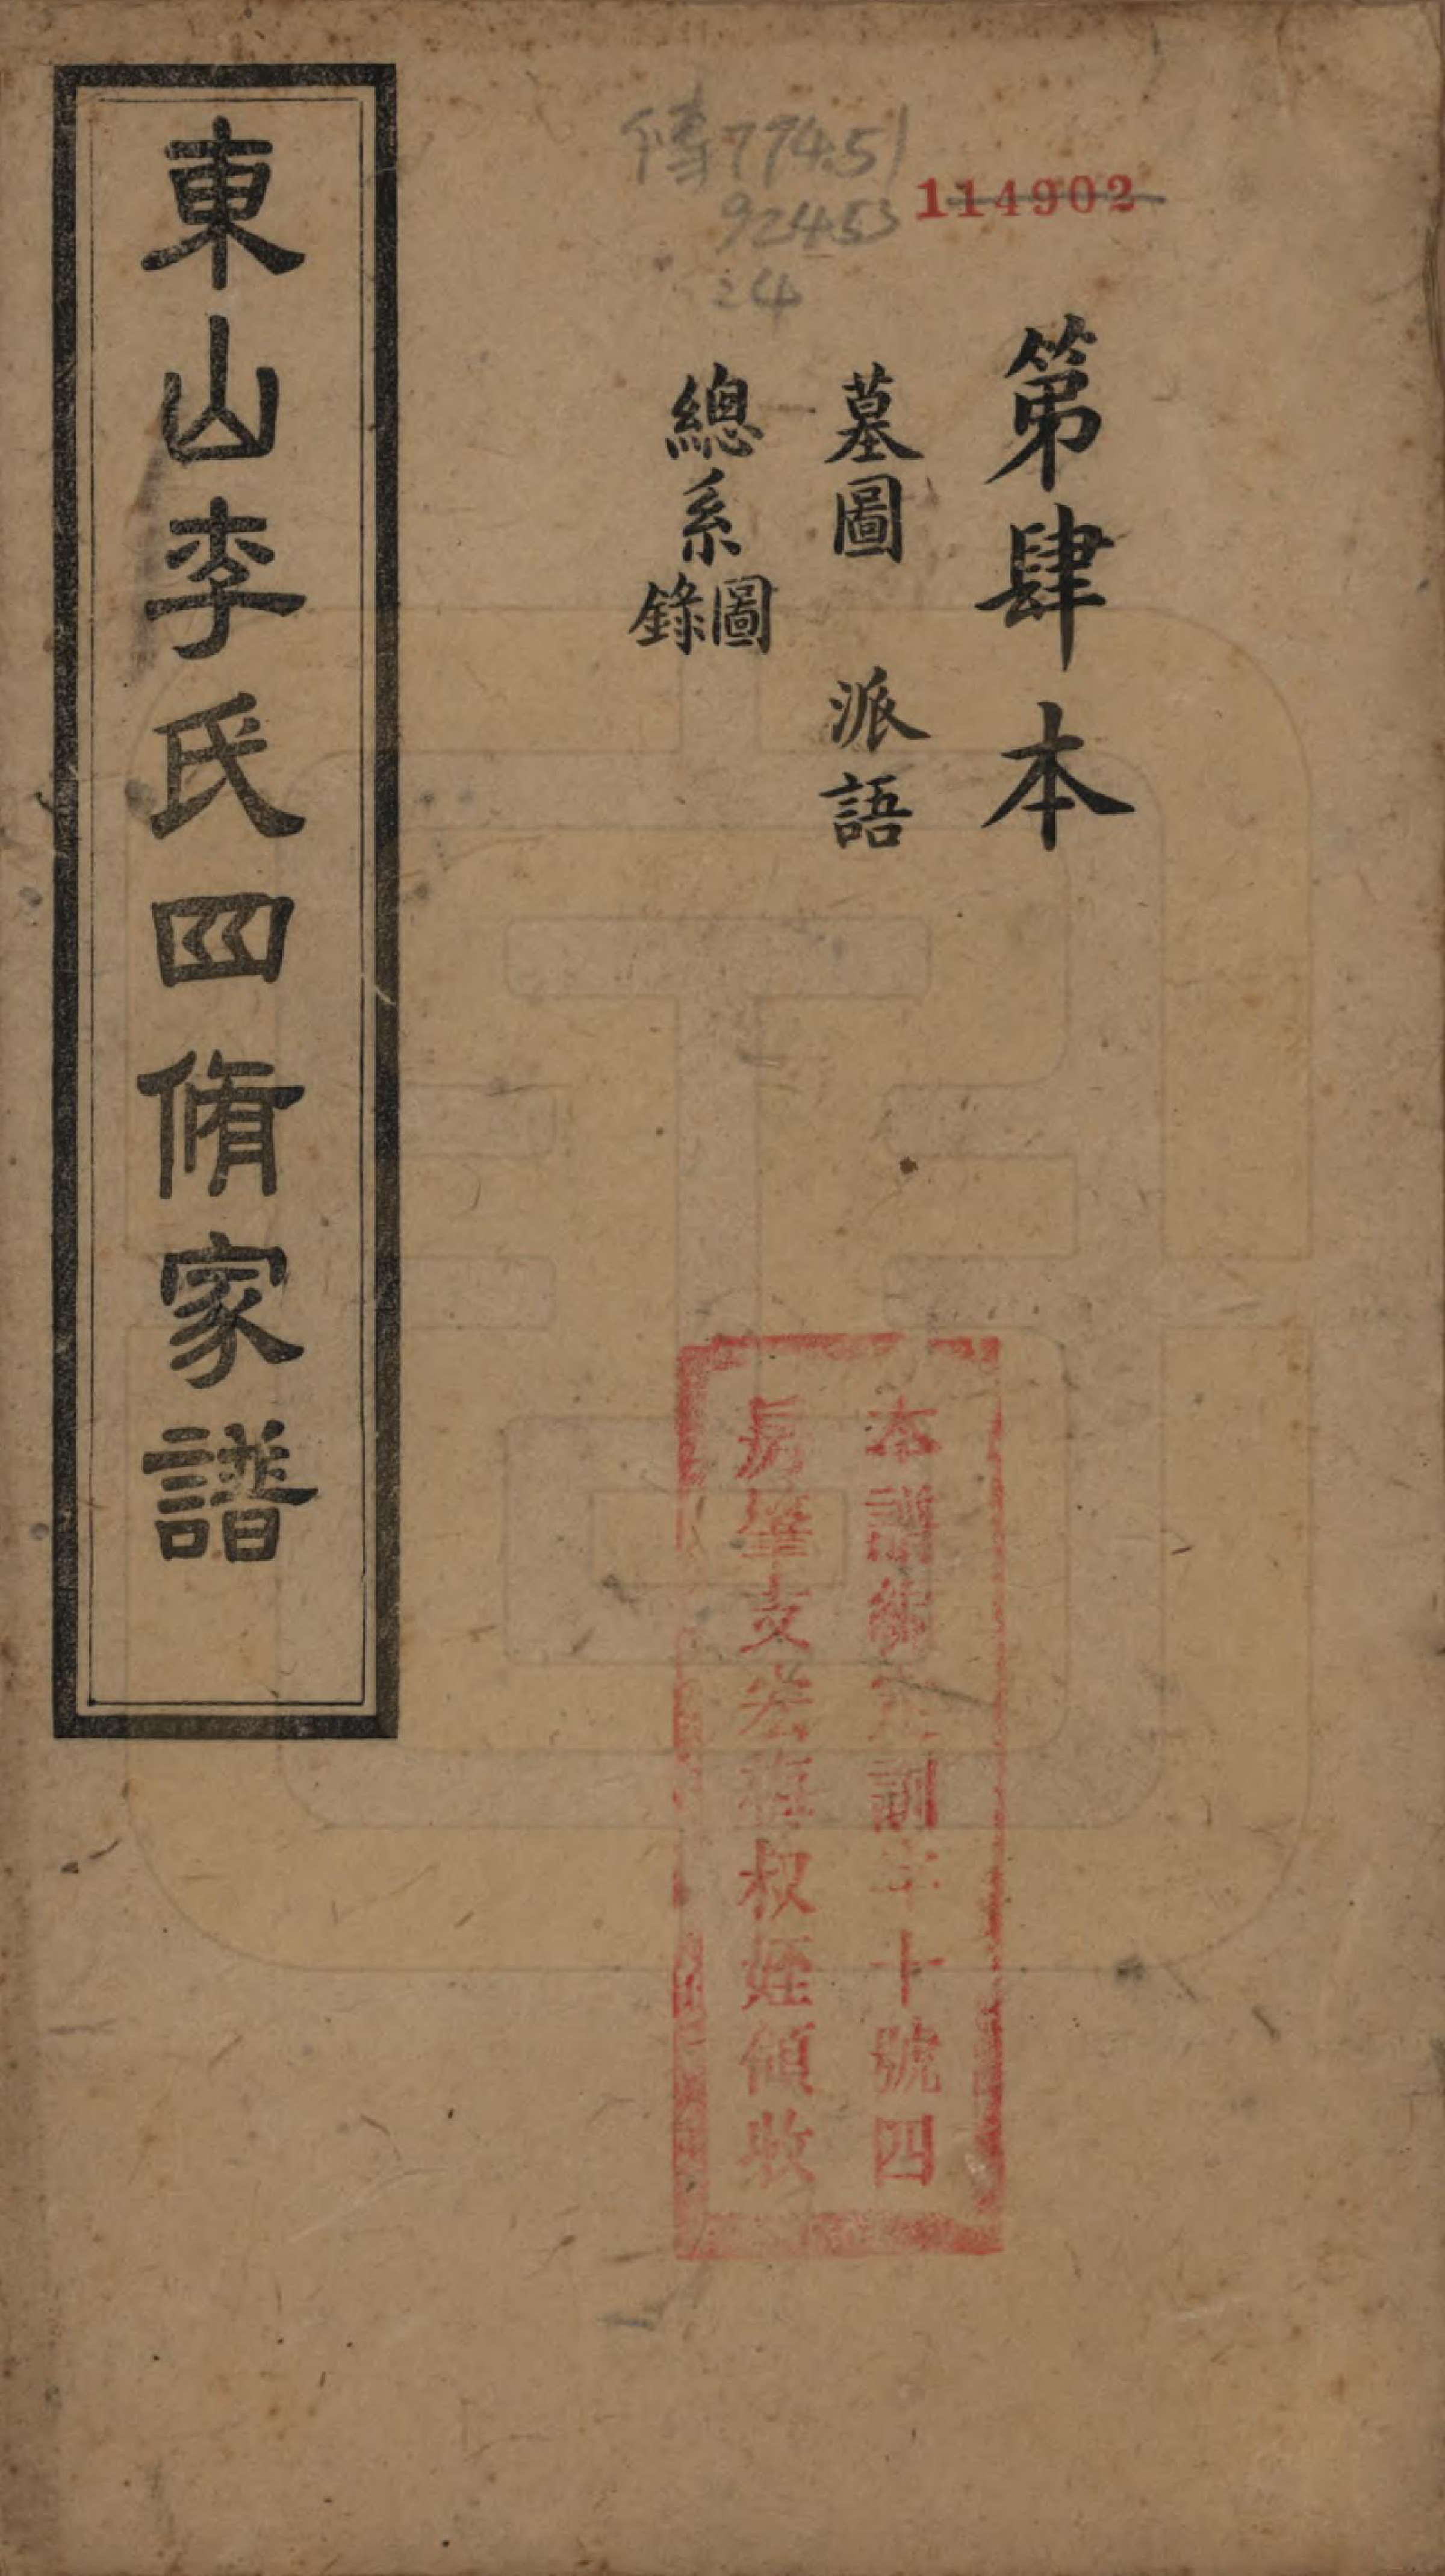 傳774.51
924.53
:4
114902
第肆本
墓圖 派語
總系圖錄
本譜編 訓字十號四
房肇支 叔姪領收
東山李氏四脩家譜